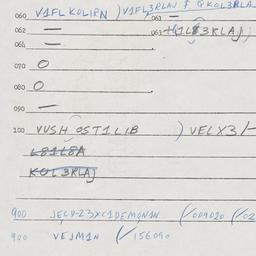 060 V1FLKOLIRN ) V1FL3RLAN & QKOL3RLA
062 — 061 —
064 — 063 H1L83KLAJ
070 O
080 O
090 —
100 VUSH OST1LIB ) VELX3/-
L81L8A
KOL3KLAJ
900 JEC8-23XC1DEMON1N (/009020 (/02
900 VEJM1N (/156090